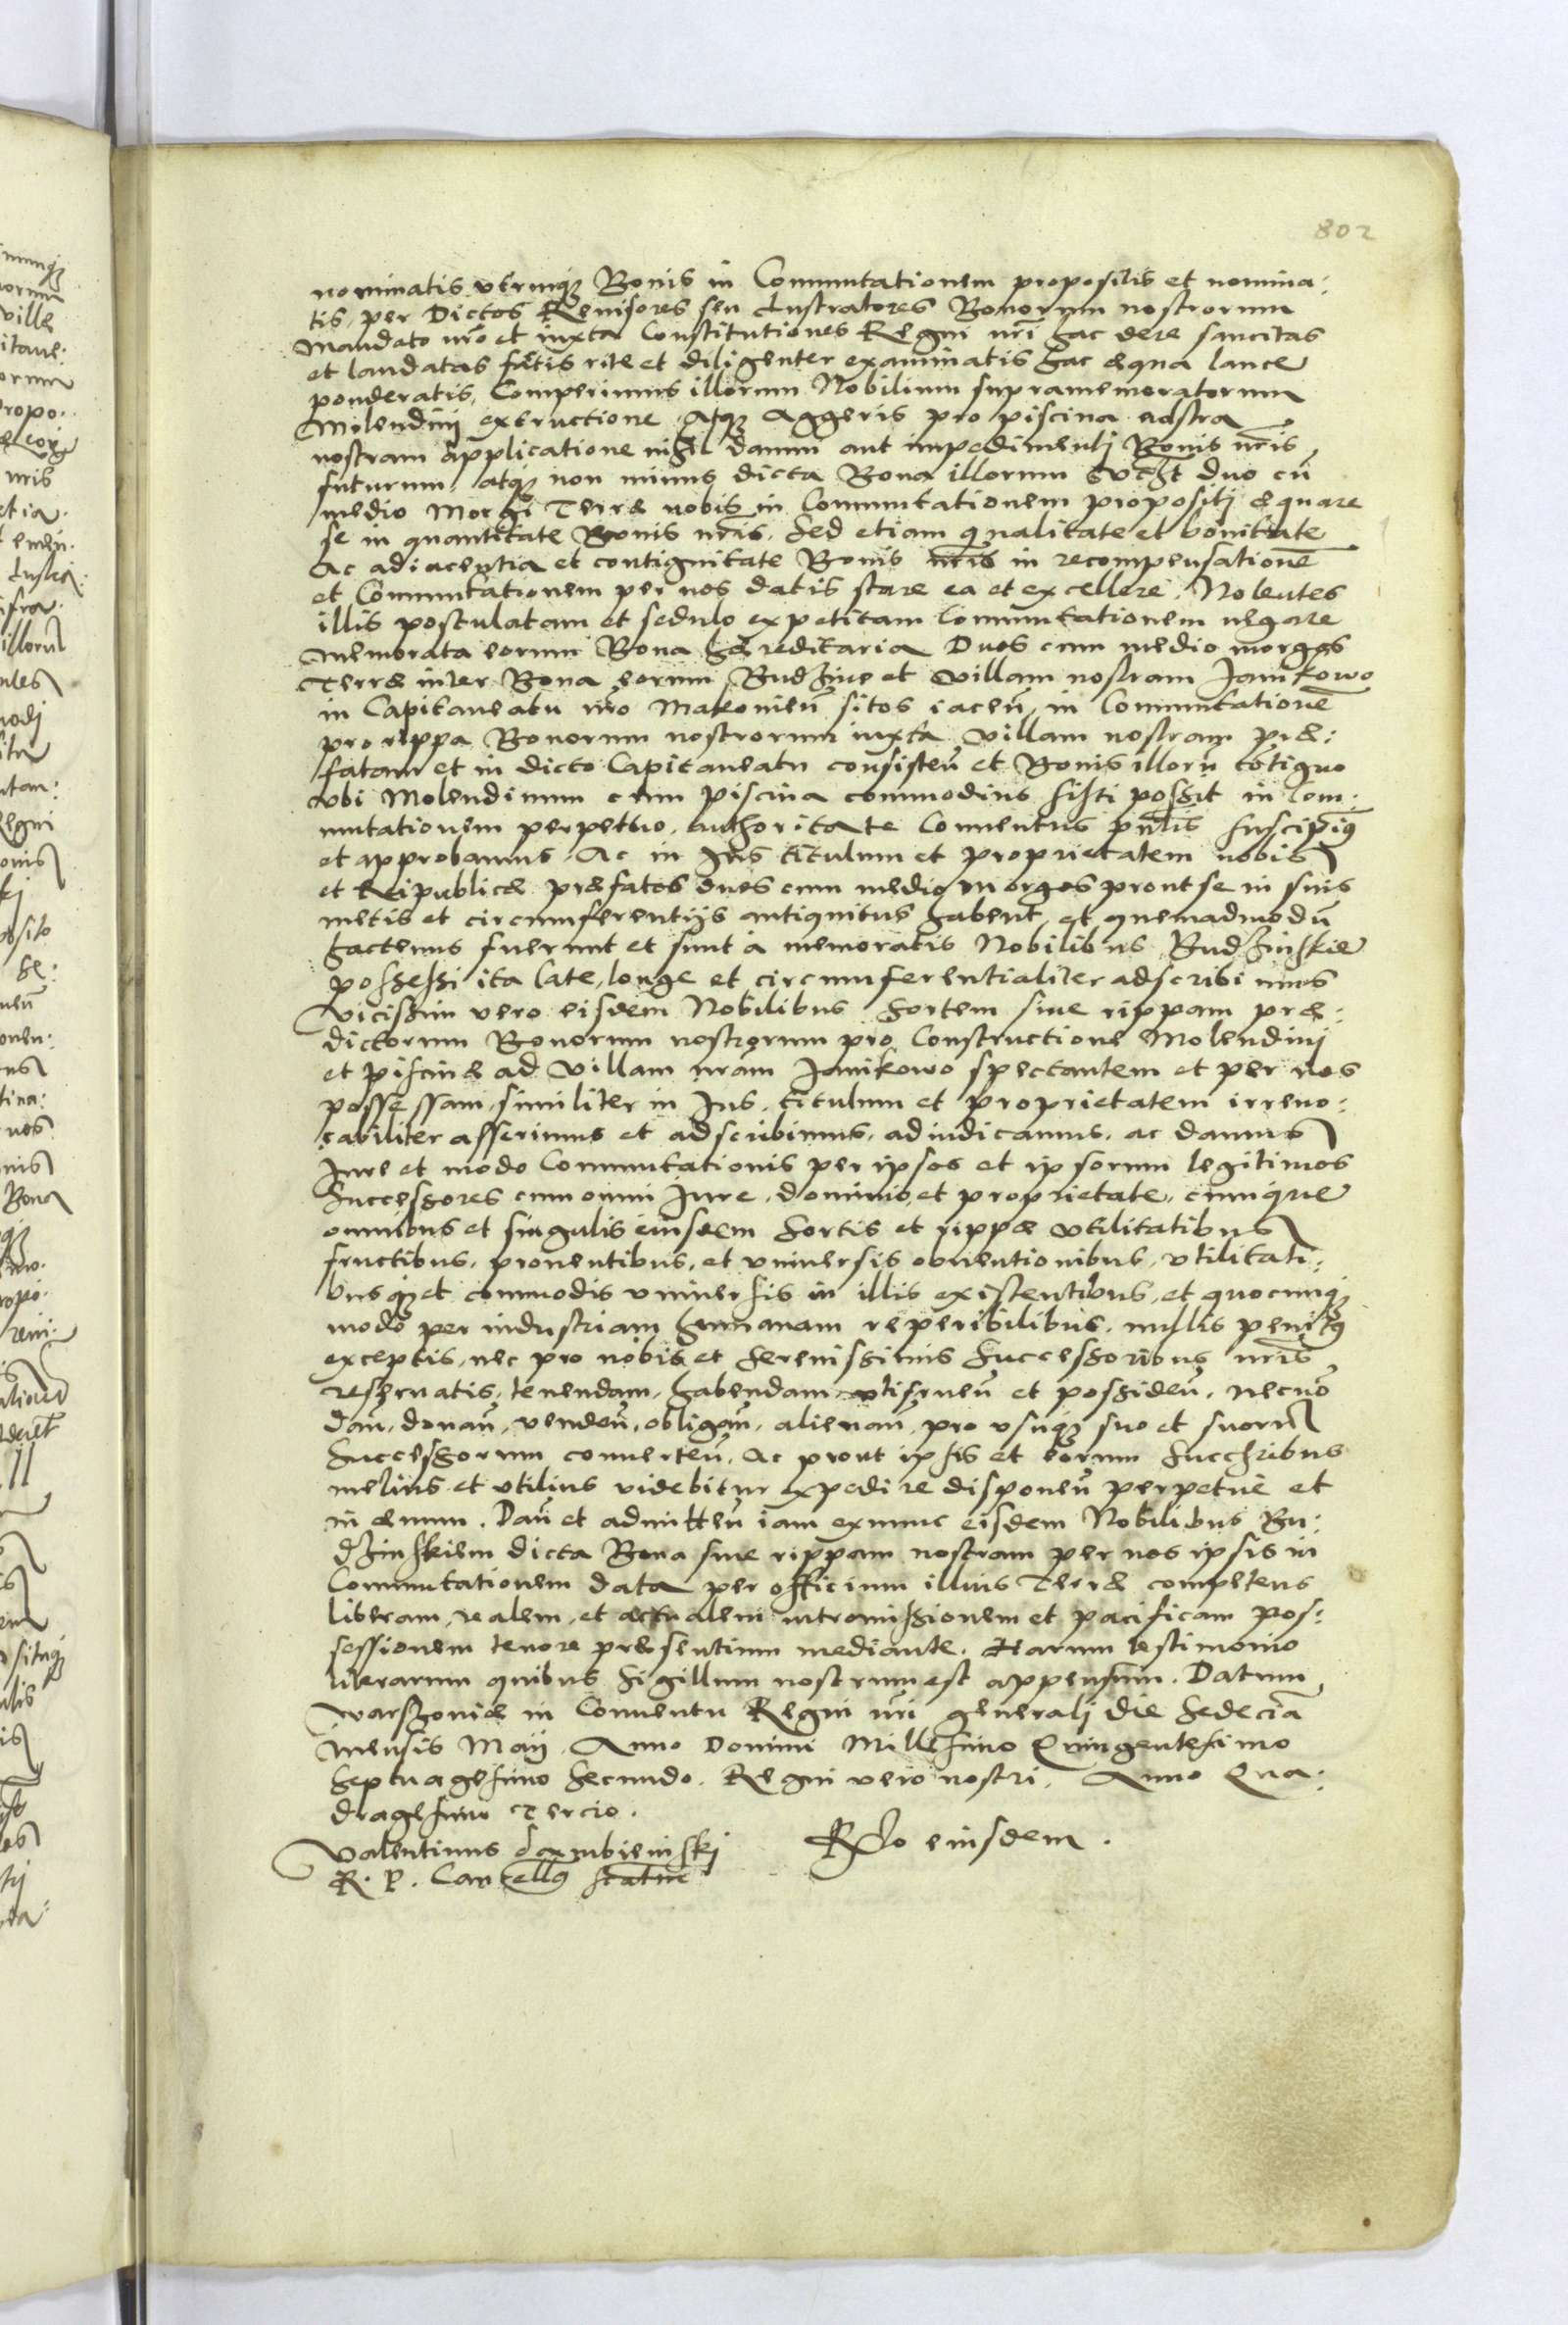 802
nominatis utrinq; Bonis in Commutationem propositis et nomina:
tis, per Dictos Revisores seu Lustratores Bonorum nostrorum
Mandato nro et iuxta Constitutiones Regni nri hac de re sancitas
et laudatas factis rite et diligenter examinatis hac æqua lance
ponderatis, Comperimus illorum Nobilium supramemoratorum
Molendini extructione atq; Aggeris pro piscina nostra
nostram applicatione nihil damni aut impedimenti Bonis nris
futurum, atq; non minus dicta Bona illorum duo cũ
medio Morgi Terræ nobis in Commutationem propositi æquare
se in quantitate Bonis nris. Sed etiam qualitate et bonitate
Ac adiacentia et contiguitate Bonis nris in recompensationẽ
et Commutationem per nos datis stare ea et excellere. Nolentes
illis postulatam et sedulo expetitam Commutationem negare
memorata eorum Bona hæreditaria Duos cum medio morgos
Terræ inter Bona eorum Budzine et Villam nostram Janikowo
in Capitaneatu nro Makovieñ sitos iaceñ, in Commutationẽ
pro rippa Bonorum nostrorum iuxta Villam nostram præ:
fatam et in dicto Capitaneatu consisteñ et Bonis illorũ cõtiguo
ubi Molendinum cum piscina commodius sisti possit in Com:
mutationem perpetuo, authoritate Conventus pñtis suscipim9
et approbamus. Ac in Ius titulum et proprietatem nobis
et Reipublicæ præfatos duos cum medio morgos prout se in suis
metis et circumferentijs antiquitus habent, et quemadmodũ
hactenus fuerunt et sunt à memoratis Nobilibus Budzinskie
possessi ita late, longe et circumferentialiter adscribimus
Vicissim vero eisdem Nobilibus Sortem sive rippam præ:
dictorum Bonorum nostrorum pro Constructione Molendini
et piscinæ ad Villam nram Janikowo spectantem et per nos
possessam, similiter in Ius, titulum et proprietatem irrevo:
cabiliter asserimus et adscribimus, adiudicamus, ac damus
Iure et modo Commutationis per ipsos et ipsorum legitimos
Successores cum omni Iure, dominio, et proprietate, cumque
omnibus et singulis eiusdem Sortis et rippæ utilitatibus
fructibus, proventibus, et universis obventionibus, utilitati:
busq; et commodis universis in illis existentibus, et quocunq;
modo per industriam humanam reperibilibus, nullis penit9
exceptis, nec pro nobis et Serenissimis Successoribus nris
reservatis, tenendam, habendam utifrueñ et possideñ, necnõ
dañ, donañ, vendeñ, obligañ, alienañ, pro usuq; suo et suorũ
Successorum converteñ, Ac prout ipsis et eorum Succribus
melius et utilius videbitur expedire disponeñ perpetue et
in ævum. Dañ et admitteñ iam exnunc eisdem Nobilibus Bu:
dzinskiem dicta Bona sive rippam nostram per nos ipsis in
Commutationem data per officium illius Terræ competens
liberam, realem, et actualem intromissionem et pacificam pos:
sessionem tenore præsentium mediante. Harum testimonio
literarum quibus Sigillum nostrum est appensum. Datum
Warszoviæ in Conventu Regni nri generali die Sedecia
Mensis Maij. Anno Domini Millesimo Quingentesimo
Septuagesimo Secundo. Regni vero nostri, Anno Qua:
dragesimo Tercio.
Valentinus Dembieński
R. P. Cancell9
Rlo eiusdem.